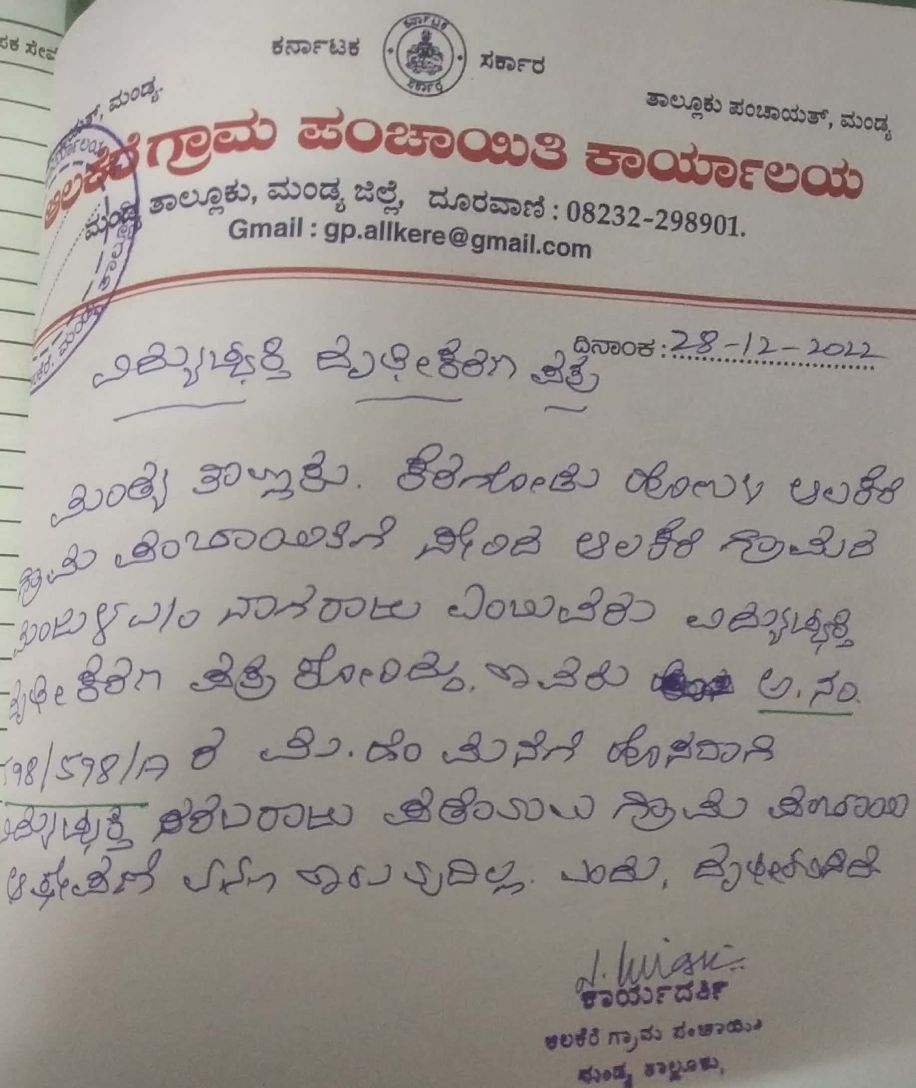 ಕರ್ನಾಟಕ ಸರ್ಕಾರ
ಮಂಡ್ಯ. ತಾಲ್ಲೂಕು ಪಂಚಾಯತ್, ಮಂಡ್ಯ
ಆಲಕೆರೆ ಗ್ರಾಮ ಪಂಚಾಯಿತಿ ಕಾರ್ಯಾಲಯ
ಮಂಡ್ಯ ತಾಲ್ಲೂಕು, ಮಂಡ್ಯ ಜಿಲ್ಲೆ, ದೂರವಾಣಿ : 08232-298901.
Gmail : gp.allkere@gmail.com
ದಿನಾಂಕ : 28-12-2022
ವಿದ್ಯುಚ್ಛಕ್ತಿ ದೃಢೀಕರಣ ಪತ್ರ
ಮಂಡ್ಯ ತಾಲ್ಲೂಕು. ಕೆರಗೋಡು ಹೋಬಳಿ ಆಲಕೆರೆ
ಗ್ರಾಮ ಪಂಚಾಯಿತಿಗೆ ಸೇರಿದ ಆಲಕೆರೆ ಗ್ರಾಮದ
ನಾಗರಾಜು ಎಂಬುವರು ವಿದ್ಯುಚ್ಛಕ್ತಿ
ದೃಢೀಕರಣ ಪತ್ರ ಕೋರಿದ್ದು, ಅ.ನಂ.
598/A ರ ಮನೆಗೆ ಹೊಸದಾಗಿ
ವಿದ್ಯುಚ್ಛಕ್ತಿ ಸರಬರಾಜು ಪಡೆಯಲು ಗ್ರಾಮ ಪಂಚಾಯಿ
ಆಕ್ಷೇಪಣೆ ಇರುವುದಿಲ್ಲ. ಎಂದು, ದೃಢೀಕರಿಸಿದೆ
ಕಾರ್ಯದರ್ಶಿ
ಆಲಕೆರೆ ಗ್ರಾಮ ಪಂಚಾಯಿತಿ
ಮಂಡ್ಯ ತಾಲ್ಲೂಕು,